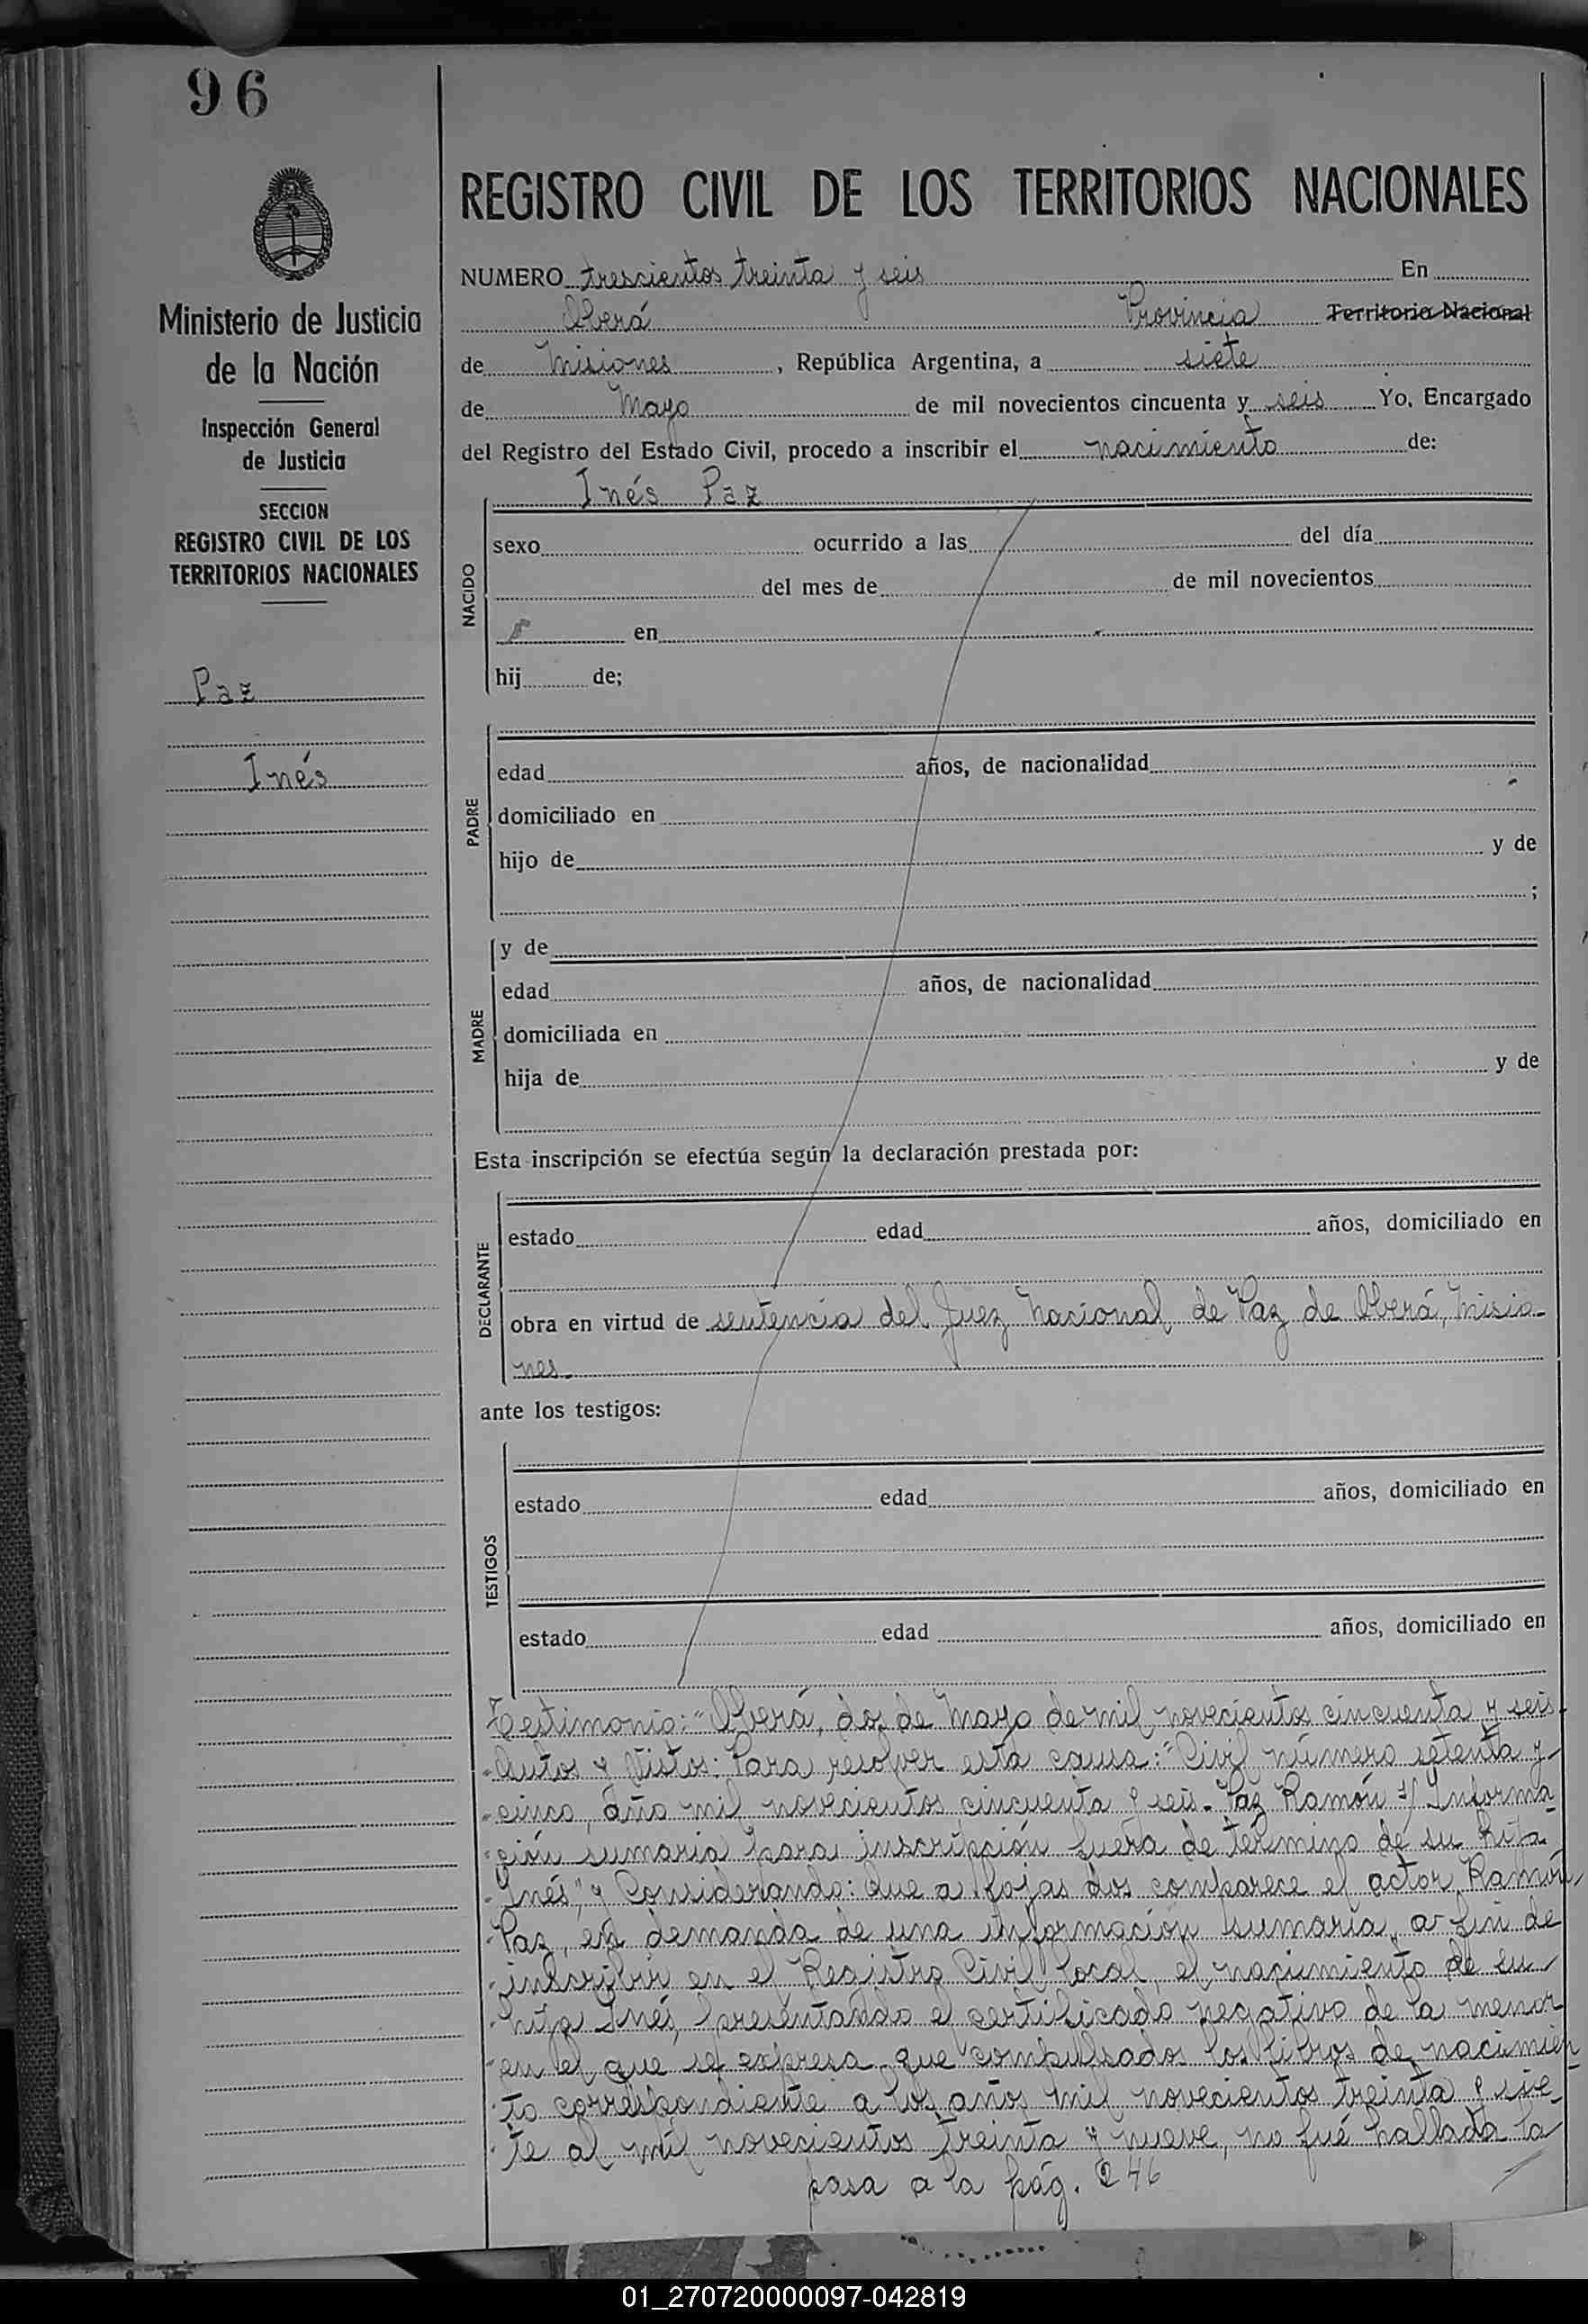 96
Ministerio de Justicia
de la Nación
Inspección General
de Justicia
SECCION
REGISTRO CIVIL DE LOS
TERRITORIOS NACIONALES
Paz
Inés
REGISTRO CIVIL DE LOS TERRITORIOS NACIONALES
NUMERO trescientos treinta y seis En
Oberá Provincia Territorio Nacional
de Misiones, República Argentina, a siete
de Mayo de mil novecientos cincuenta y seis Yo, Encargado
del Registro del Estado Civil, procedo a inscribir el nacimiento de:
Inés Paz
NACIDO
sexo ocurrido a las del día
del mes de de mil novecientos
en
hij de;
PADRE
edad años, de nacionalidad
domiciliado en
hijo de y de
;
MADRE
y de
edad años, de nacionalidad
domiciliada en
hija de y de
Esta inscripción se efectúa según la declaración prestada por:
DECLARANTE
estado edad años, domiciliado en
obra en virtud de sentencia del Juez Nacional de Paz de Oberá, Misio-
nes.
ante los testigos:
TESTIGOS
estado edad años, domiciliado en
estado edad años, domiciliado en
Testimonio: "Oberá, dos de Mayo de mil novecientos cincuenta y seis.
Autos y Vistos: Para resolver esta causa: "Civil número setenta y
cinco, año mil novecientos cincuenta y seis. Paz Ramón s/ Informa
ción sumaria para inscripción fuera de término de su hija
Inés", y Considerando: Que a fojas dos comparece el actor Ramón
Paz, en demanda de una información sumaria, a fin de
inscribir en el Registro Civil local, el nacimiento de su
hija Inés, presentando el certificado negativo de la menor
en el que se expresa que compulsados los libros de nacimien
to correspondiente a los años mil novecientos treinta y sie-
te al mil novecientos treinta y nueve, no fué hallada la
pasa a la pág. 246
01_270720000097-042819